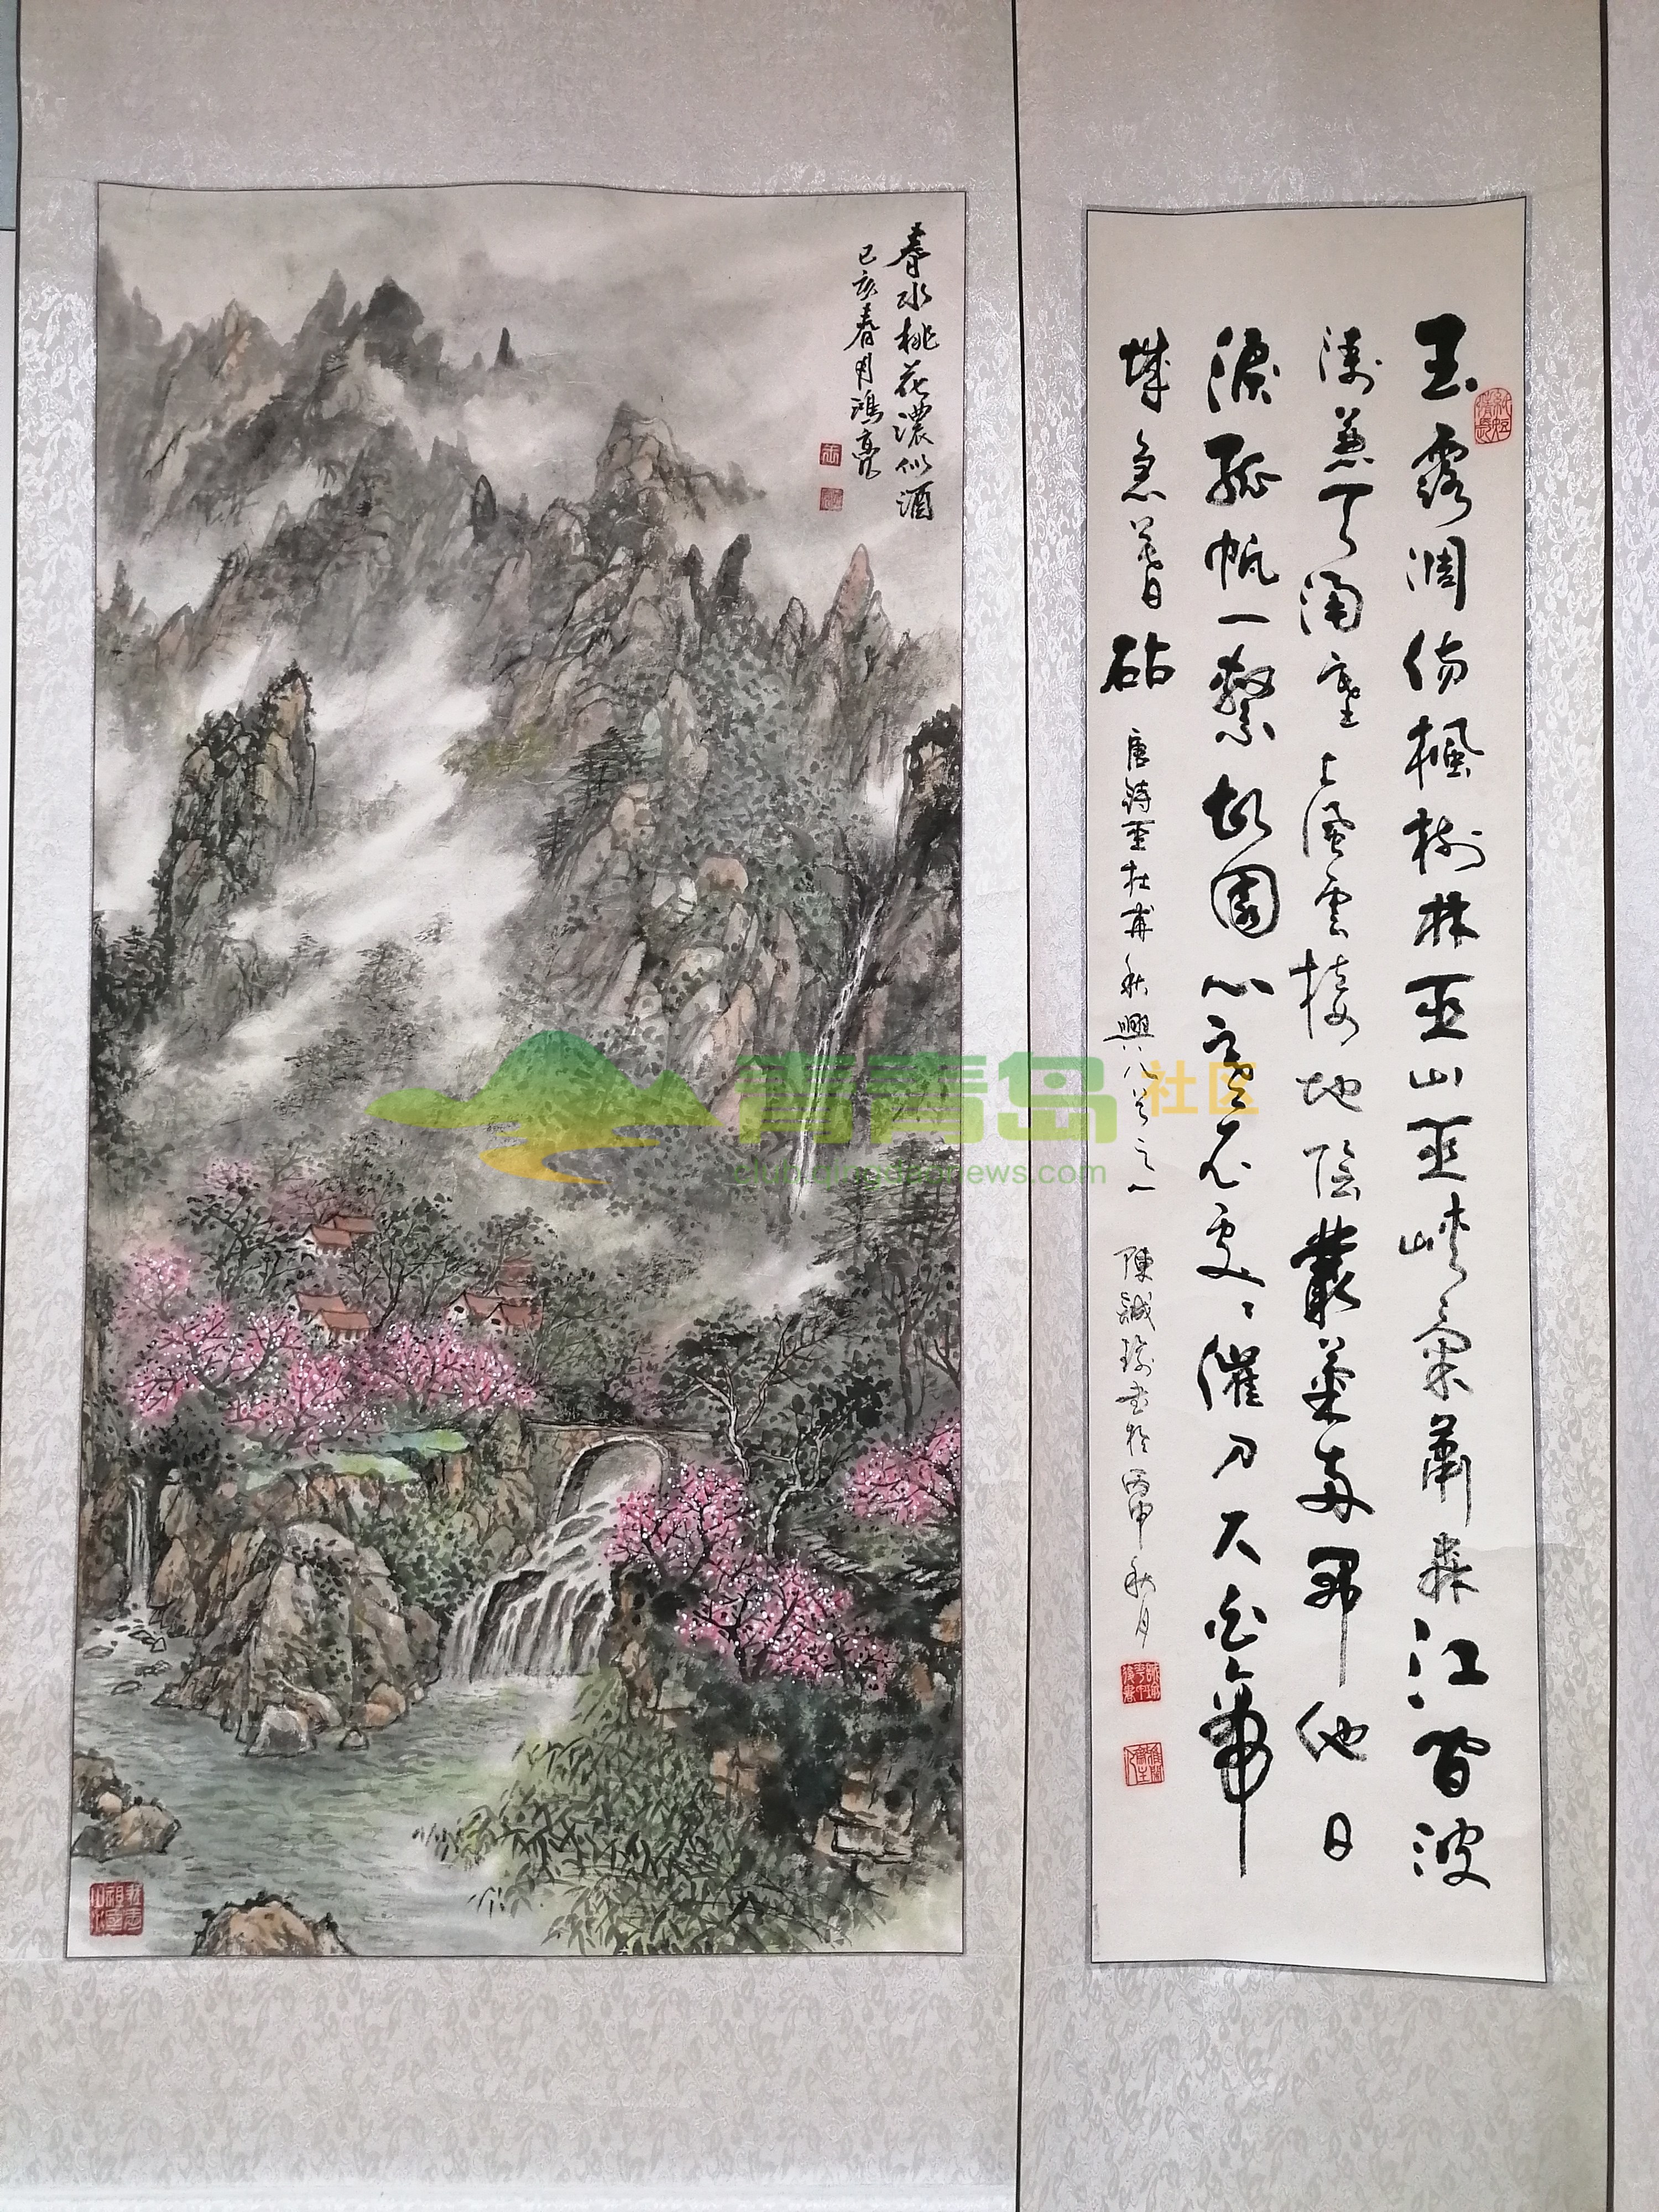 春水桃花濃似酒
己亥春月鴻亮
玉露凋傷楓樹林巫山巫峽氣蕭森江間波
濤兼天涌塞上風雲接地陰叢菊兩開他日
淚孤帆一繫故園心寒衣處々催刀尺白帝
城急暮砧
唐詩聖杜甫秋興八首之一 陳誠書於丙申秋月
青青岛 社区
club.qingdaonews.com